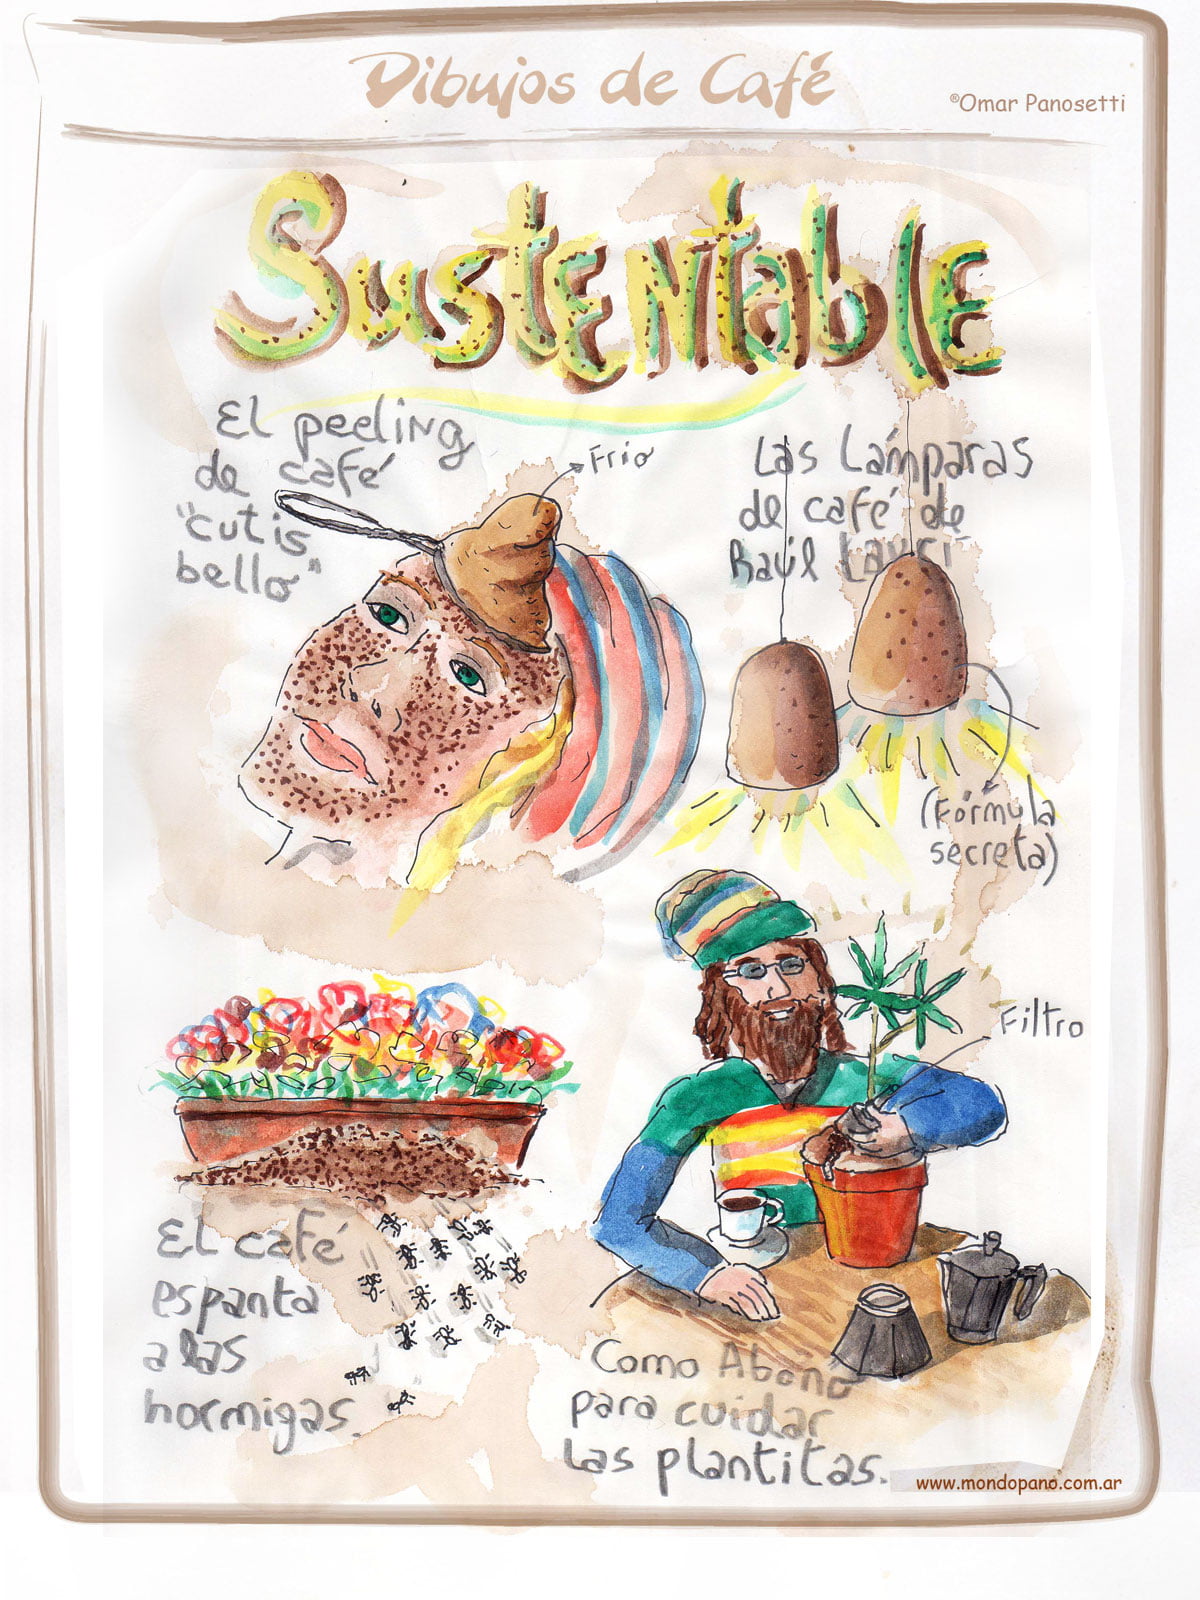 Dibujos de Café
®Omar Panosetti
Sustentable
El peeling
de café
"cutis
bello"
Frio
Las Lámparas
de café de
Raúl Laurí
(Fórmula
secreta)
Filtro
El café
espanta
a las
hormigas.
Como Abono
para cuidar
las plantitas.
www.mondopano.com.ar